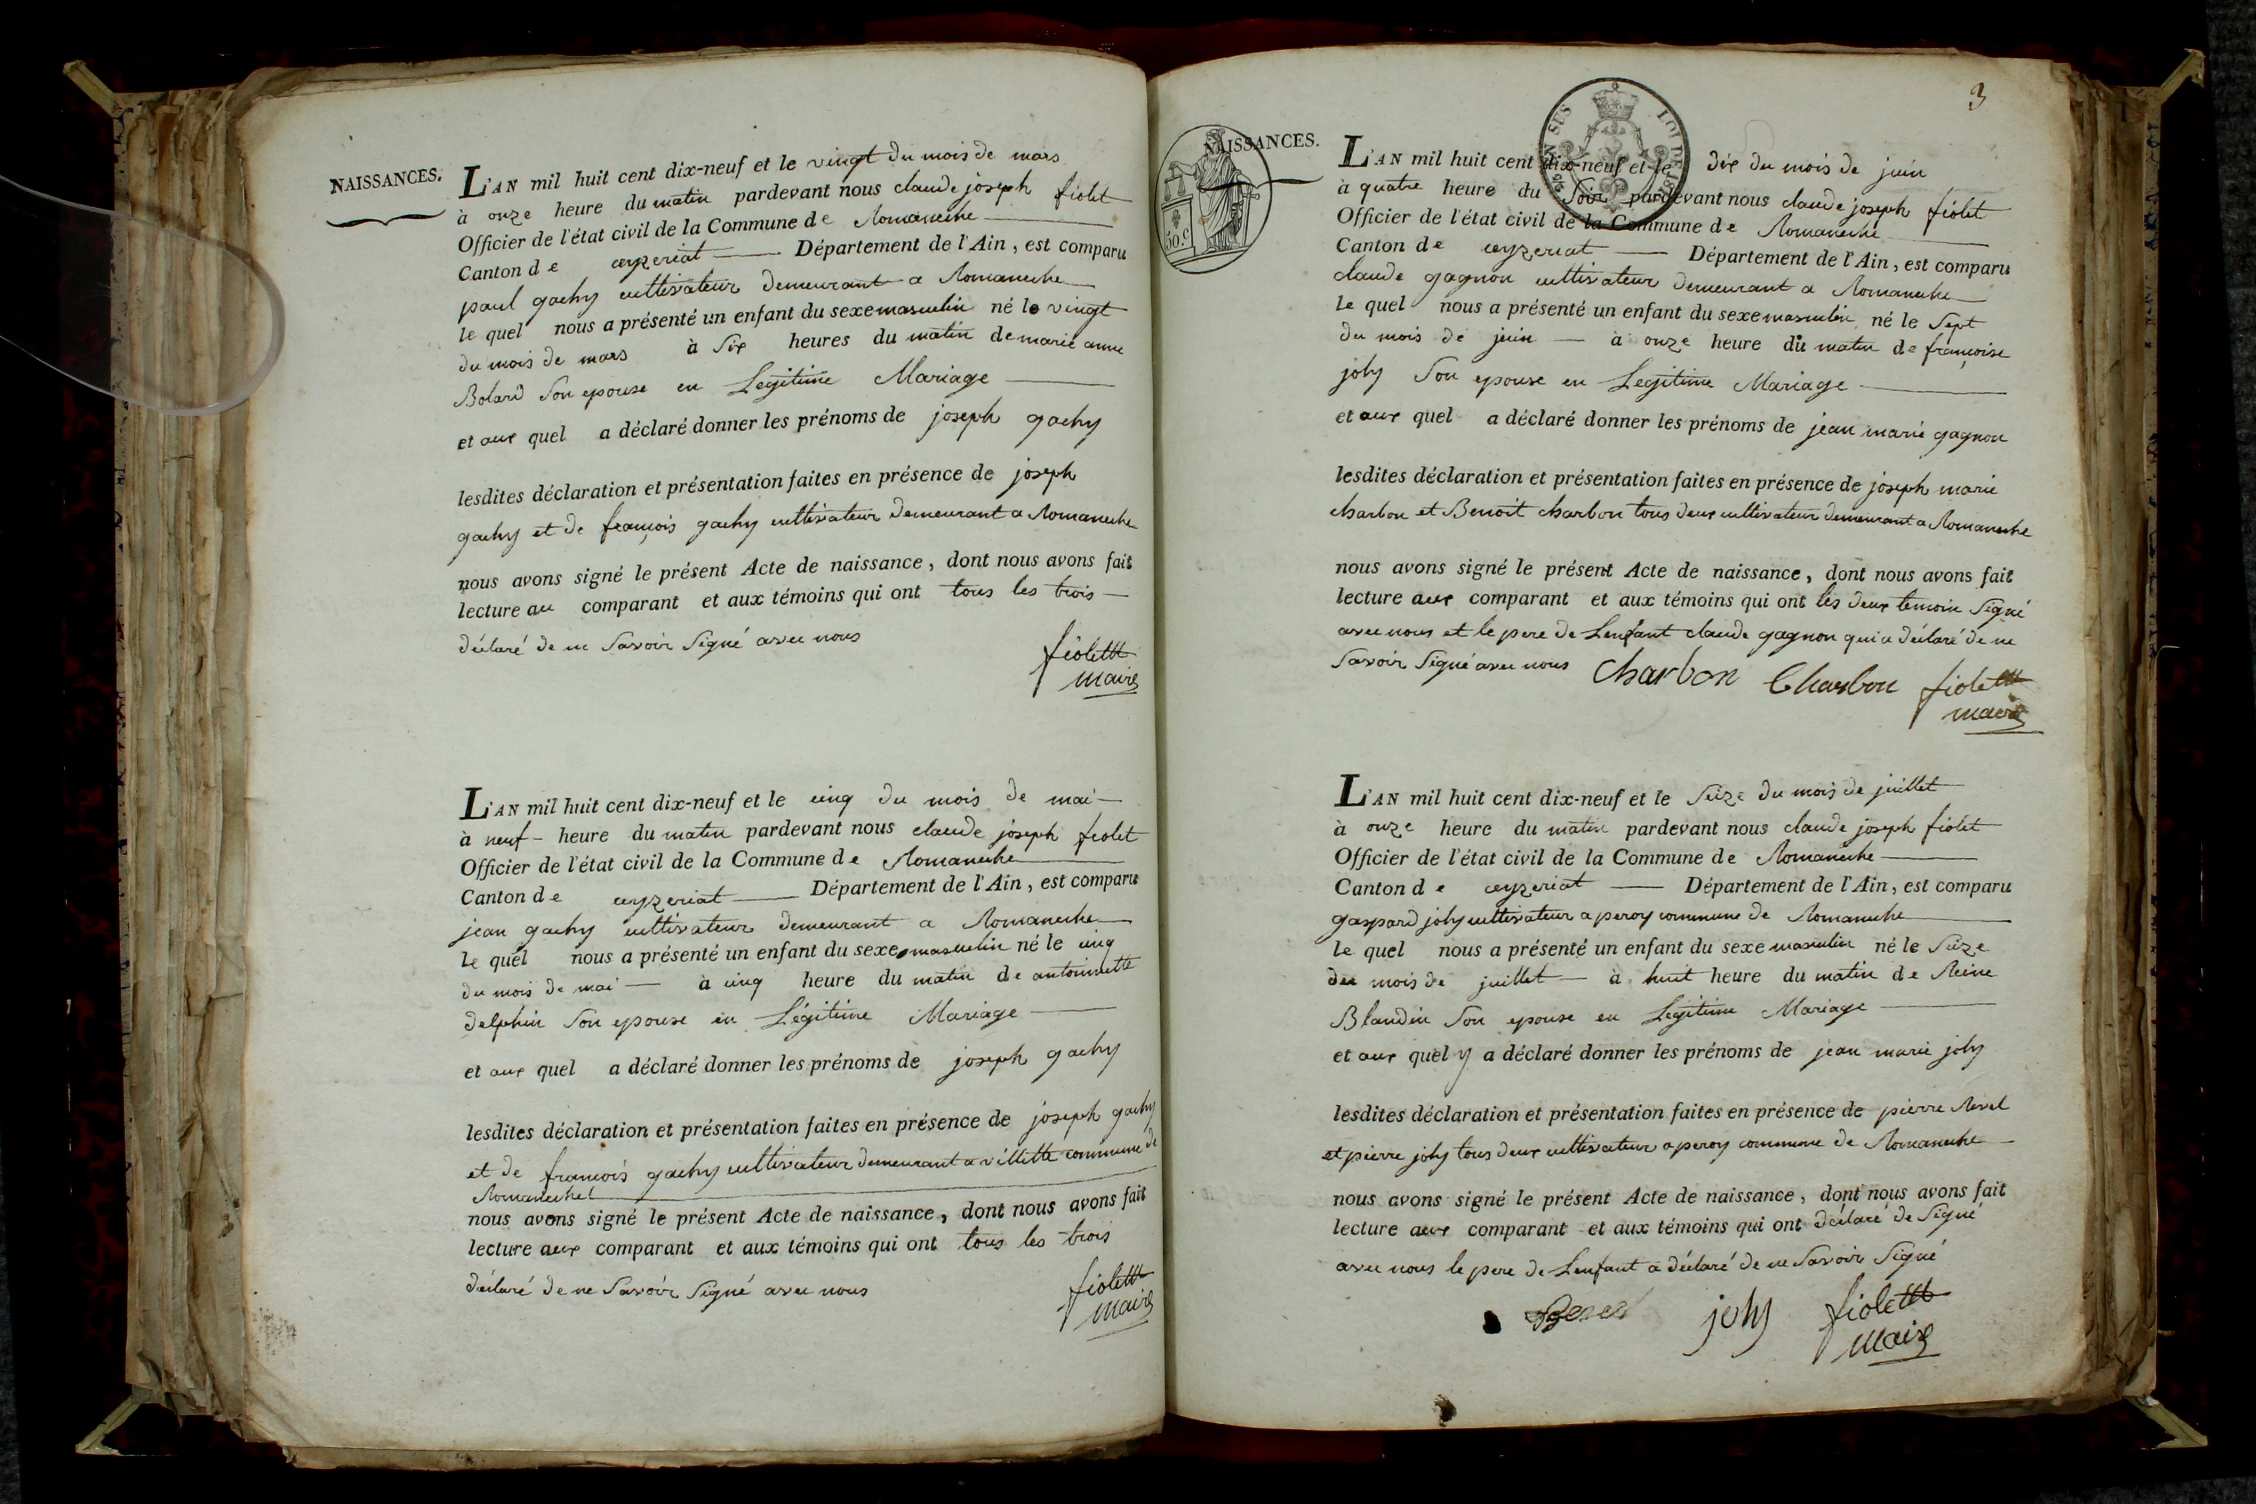 NAISSANCES.
L'AN mil huit cent dix-neuf et le vingt du mois de mars
à onze heure du matin pardevant nous claude joseph fiolet
Officier de l'état civil de la Commune de Romaneche
Canton de ceyzeriat Département de l'Ain, est comparu
paul gachy cultivateur demeurant a Romaneche
le quel nous a présenté un enfant du sexe masculin né le vingt
du mois de mars à Six heures du matin de marie anne
Bolard Son epouse en Legitime Mariage
et aux quel a déclaré donner les prénoms de joseph gachy
lesdites déclaration et présentation faites en présence de joseph
gachy et de françois gachy cultivateur demeurant a Romaneche
nous avons signé le présent Acte de naissance, dont nous avons fait
lecture au comparant et aux témoins qui ont tous les trois
déclaré de ne Savoir Signé avec nous
fiolet
maire
L'AN mil huit cent dix-neuf et le cinq du mois de mai
à neuf heure du matin pardevant nous claude joseph fiolet
Officier de l'état civil de la Commune de Romaneche
Canton de ceyzeriat Département de l'Ain, est comparu
jean gachy cultivateur demeurant a Romaneche
le quel nous a présenté un enfant du sexe masculin né le cinq
du mois de mai à cinq heure du matin de antoinette
delphin Son epouse en Légitime Mariage
et aux quel a déclaré donner les prénoms de joseph gachy
lesdites déclaration et présentation faites en présence de joseph gachy
et de francois gachy cultivateur demeurant a villette commune de
Romaneche
nous avons signé le présent Acte de naissance, dont nous avons fait
lecture aux comparant et aux témoins qui ont tous les trois
déclaré de ne Savoir Signé avec nous
fiolet
maire
3
NAISSANCES.
50.c
L'AN mil huit cent dix-neuf et le dix du mois de juin
à quatre heure du Soir pardevant nous claude joseph fiolet
Officier de l'état civil de la Commune de Romaneche
Canton de ceyzeriat Département de l'Ain, est comparu
claude gagnon cultivateur demeurant a Romaneche
le quel nous a présenté un enfant du sexe masculin né le Sept
du mois de juin à onze heure du matin de françoise
joly Son epouse en Legitime Mariage
et aux quel a déclaré donner les prénoms de jean marie gagnon
lesdites déclaration et présentation faites en présence de joseph marie
charbon et Benoit charbon tous deux cultivateur demeurant a Romaneche
nous avons signé le présent Acte de naissance, dont nous avons fait
lecture aux comparant et aux témoins qui ont les deux temoin Signé
avec nous et le pere de Lenfant claude gagnon qui a déclaré de ne
Savoir Signé avec nous
charbon Charbon fiolet
maire
L'AN mil huit cent dix-neuf et le Seize du mois de juillet
à onze heure du matin pardevant nous claude joseph fiolet
Officier de l'état civil de la Commune de Romaneche
Canton de ceyzeriat Département de l'Ain, est comparu
gaspard joly cultivateur a peroy commune de Romaneche
le quel nous a présenté un enfant du sexe masculin né le Seize
du mois de juillet à huit heure du matin de Reine
Blandin Son epouse en Legitime Mariage
et aux quel y a déclaré donner les prénoms de jean marie joly
lesdites déclaration et présentation faites en présence de pierre Revel
et pierre joly tous deux cultivateur a peroy commune de Romaneche
nous avons signé le présent Acte de naissance, dont nous avons fait
lecture aux comparant et aux témoins qui ont déclaré de Signé
avec nous le pere de Lenfant a déclaré de ne Savoir Signé
joly fiolet
maire